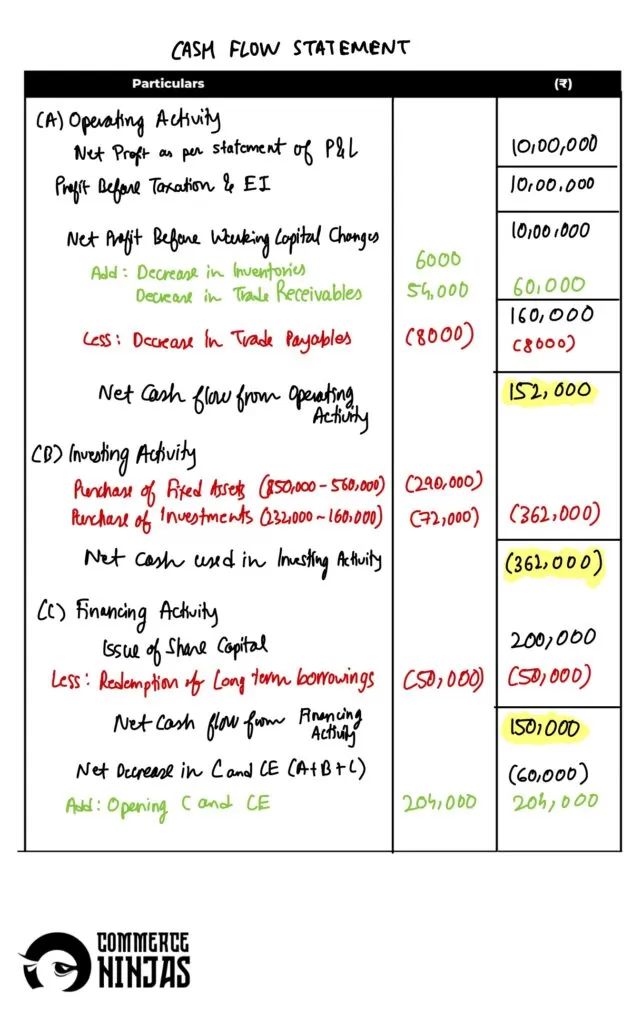 CASH FLOW STATEMENT
Particulars (₹)
(A) Operating Activity
Net Profit as per statement of P&L 10,00,000
Profit Before Taxation & EI 10,00,000
Net Profit Before Working Capital Changes 10,00,000
Add: Decrease in Inventories 6000
Decrease in Trade Receivables 54,000 60,000
160,000
Less: Decrease In Trade Payables (8000) (8000)
Net Cash flow from Operating 152,000
Activity
(B) Investing Activity
Purchase of Fixed Assets (850,000-560,000) (290,000)
Purchase of Investments (232,000-160,000) (72,000) (362,000)
Net Cash used in Investing Activity (362,000)
(C) Financing Activity
Issue of Share Capital 200,000
Less: Redemption of Long term borrowings (50,000) (50,000)
Net Cash flow from Financing 150,000
Activity
Net Decrease in C and CE (A+B+C) (60,000)
Add: Opening C and CE 204,000 204,000
COMMERCE
NINJAS